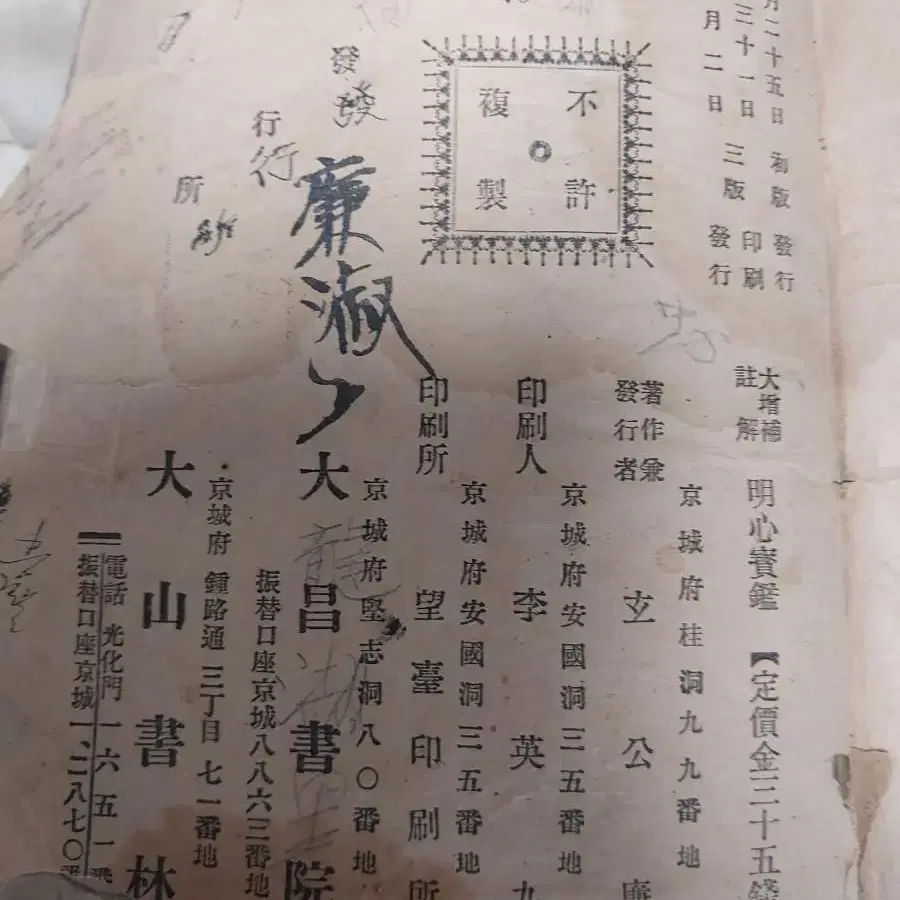 月二十五日 初版 發行
三十一日 印刷
月二日 三版 發行
不許
複製
大增補
註解
明心寶鑑 【定價金三十五錢
京城府桂洞九九番地
著作兼
發行者
玄公廉
京城府安國洞三五番地
印刷人 李英九
京城府安國洞三五番地
印刷所 望臺印刷所
發行所
發行
廉淑
京城府堅志洞八〇番地
大昌書院
振替口座京城八八六三番地
京城府 鍾路通 三丁目 七一番地
大山書林
電話 光化門 一六五一番
振替口座京城一、二八七〇番